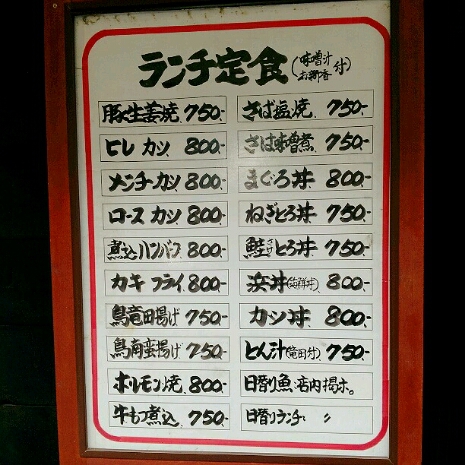 ランチ定食(味噌汁 お新香 付)
豚生姜焼 750-
ヒレカツ 800-
メンチカツ 800-
ロースカツ 800-
煮込ハンバーグ 800-
カキフライ 800-
鳥竜田揚げ 750-
鳥南蛮揚げ 750-
ホルモン焼 800-
牛もつ煮込 750-
さば塩焼 750-
さば味噌煮 750-
まぐろ丼 800-
ねぎとろ丼 750-
鮭とろ丼 750-
浜丼(海鮮丼) 800-
カツ丼 800-
とん汁(竜田付) 750-
日替り魚 店内掲示。
日替りランチ 〃